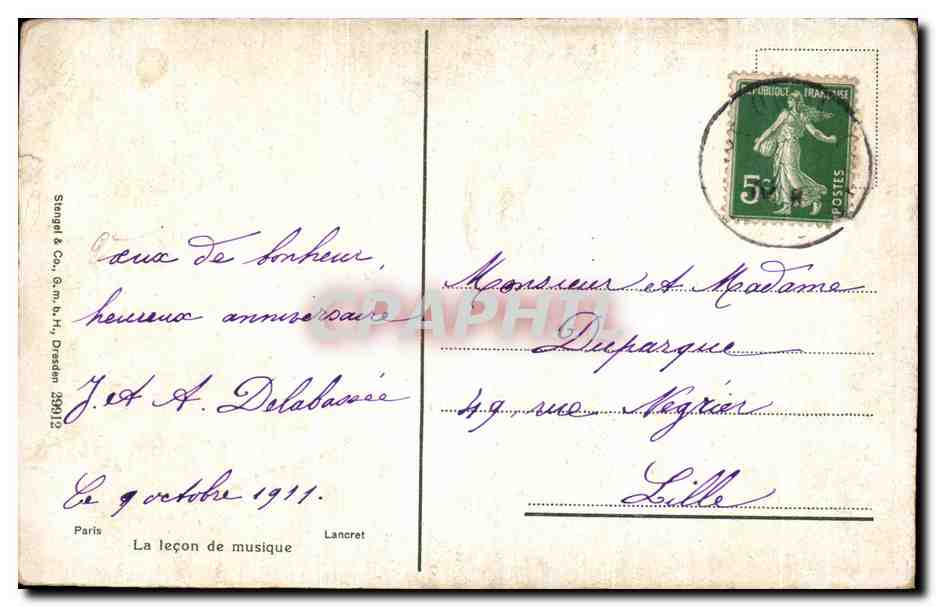 Stengel & Co., G. m. b. H., Dresden 29912
de bonheur,
heureux anniversaire
J. et A. Delabassée
Le 9 octobre 1911.
Paris
Lancret
La leçon de musique
REPUBLIQUE FRANÇAISE
5c
POSTES
Monsieur et Madame
Duparque
49, rue Negrier
Lille
CPAPHIL